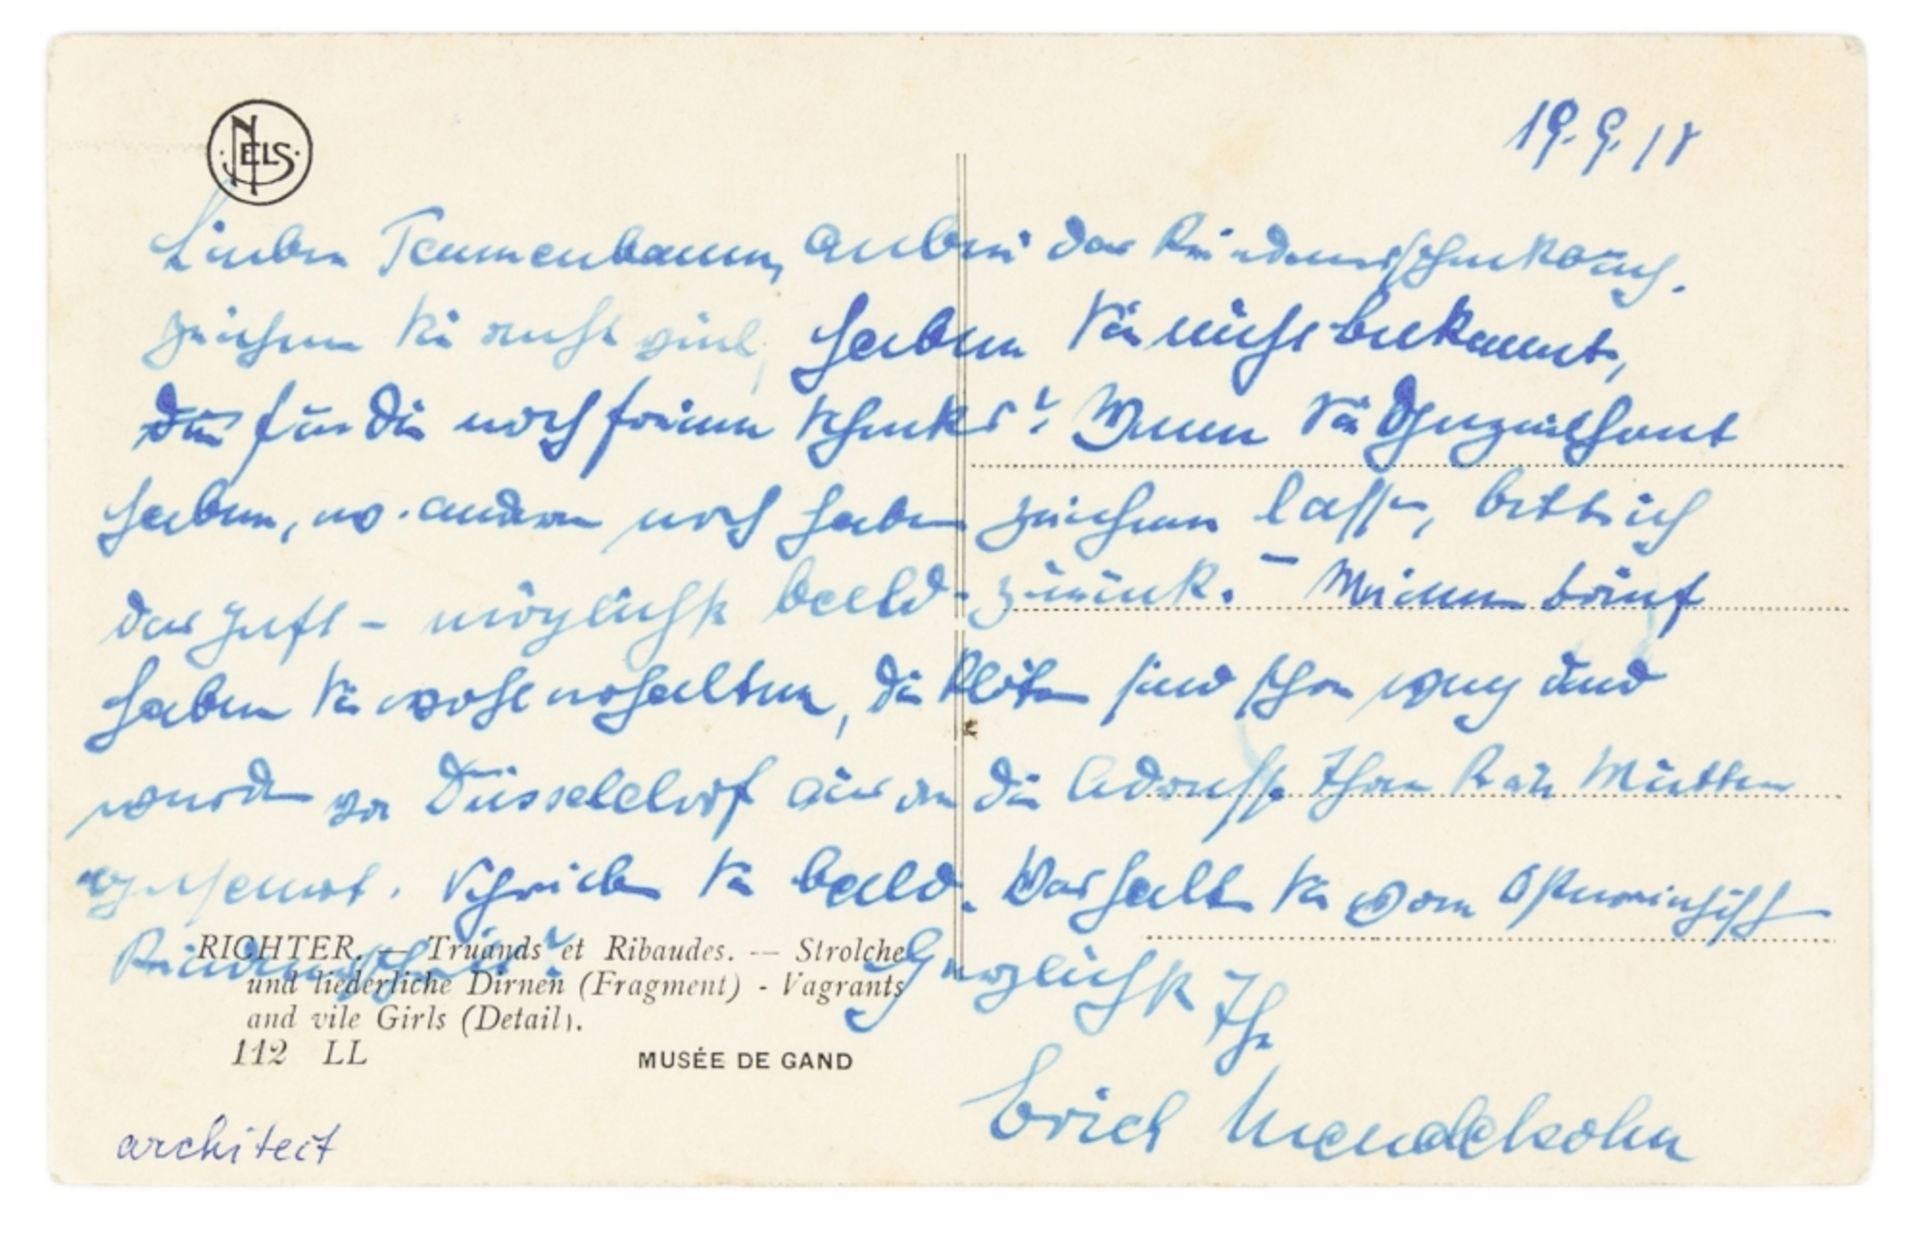 NELS
19.9.18
Lieber Tannenbaum, anbei das
zeichnen Sie recht viel, haben Sie nicht bekannte,
die für Sie noch freien Schuks? Wenn Sie Ihr
haben, u. andere noch haben zeichnen lassen, bitte ich
das Heft - möglichst bald - zurück. - Meinen Brief
haben Sie wohl erhalten, die sind schon weg und
wurden von Düsseldorf aus an die Adresse Ihrer Frau Mutter
gesandt. Schreiben Sie bald. Was halten Sie vom
Herzlichst Ihr
Erich Mendelsohn
RICHTER. — Truands et Ribaudes. — Strolche
und liederliche Dirnen (Fragment) - Vagrants
and vile Girls (Detail).
112 LL
MUSÉE DE GAND
architect